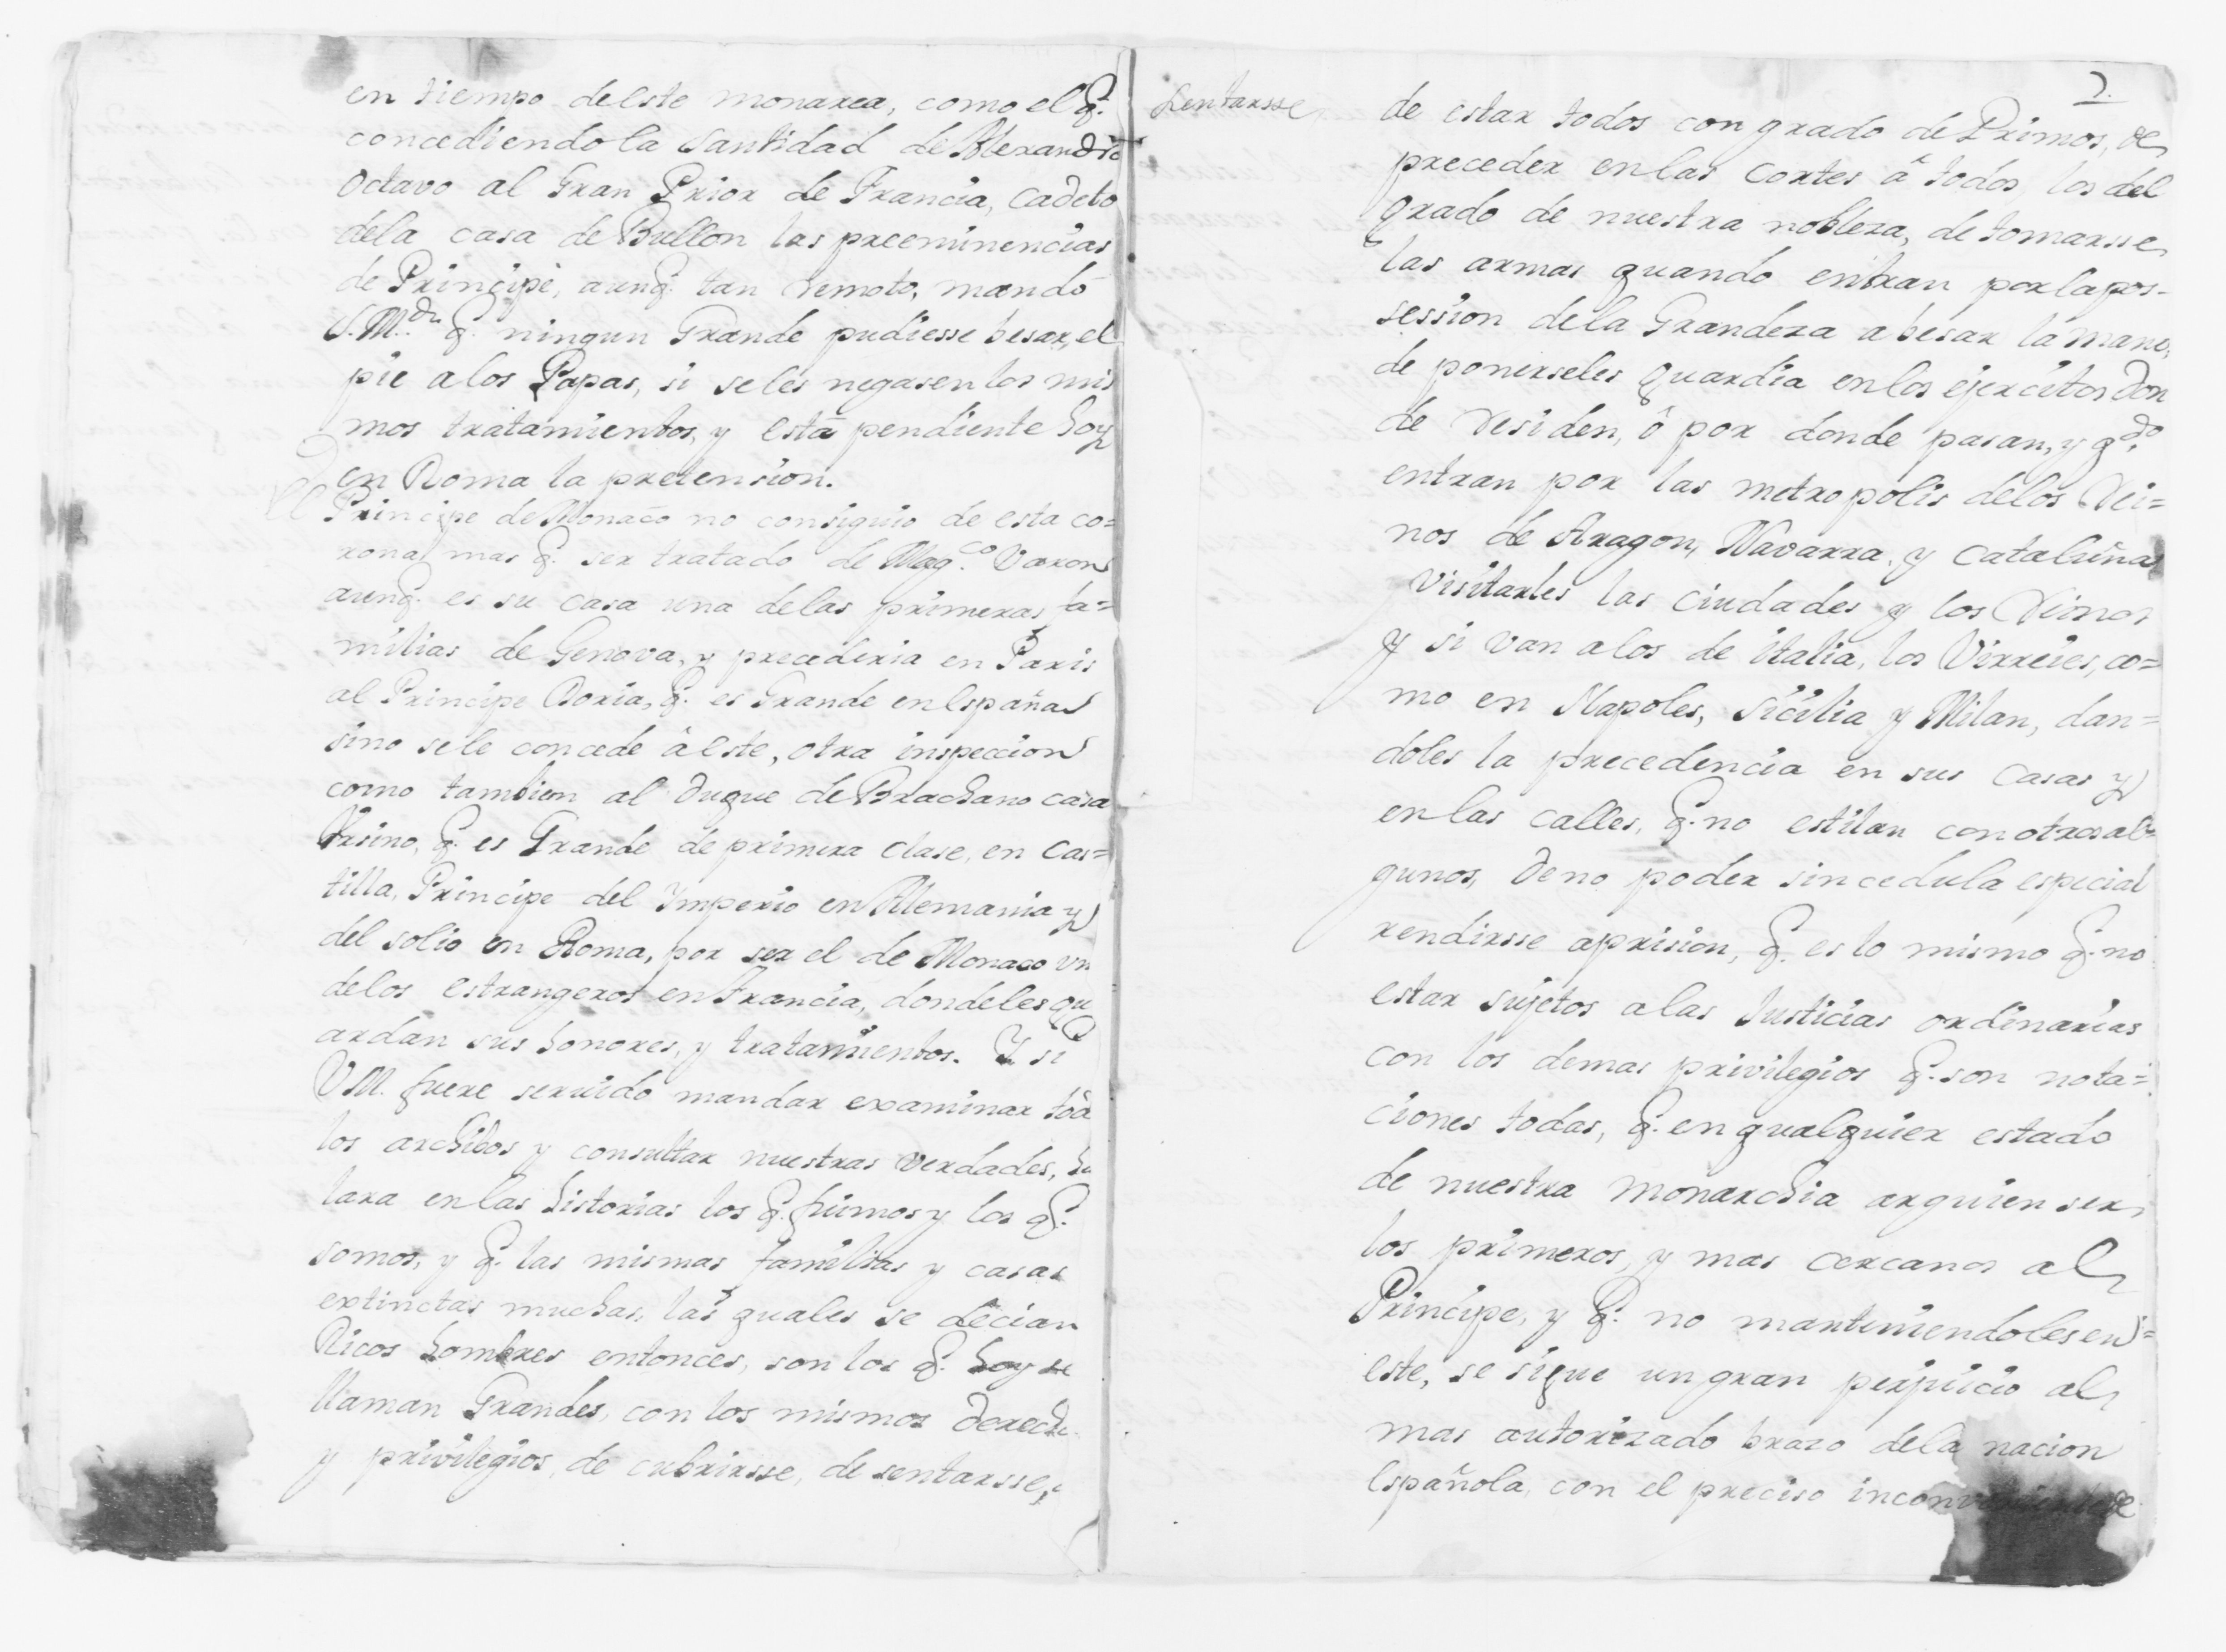 en tiempo deeste monarca, como el q.
concediendo la Santidad de Alexandro
Octavo al Gran Prior de Francia, cadeto
dela casa de Bullon las preeminencias
de Principe, aunq. tan remoto, mandò
S. M.d q. ningun Grande pudiesse besar, el
pie a los Papas, si seles negasen los mis
mos tratamientos, y està pendiente hoy
en Roma la pretension.
El Principe de Monaco no consiguio de esta co=
rona mas q. ser tratado de Mag.co Varon
aunq. es su casa una delas primeras fa=
milias de Genova, y precederia en Paris
al Principe Doria, q. es Grande en España
sino sele concede à este, otra inspeccion
como tambien al Duque de Brachano casa
Vrsino, q. es Grande de primera clase, en Cas=
tilla, Principe del Imperio en Alemania y
del solio en Roma, por ser el de Monaco vn
delos estrangeros en Francia, dondeles gu
ardan sus honores, y tratamientos. Y si
V.M. fuere seruido mandar examinar tõa
los archibos y consultar nuestras verdades, ha
lara en las historias los q. fuimos y los q.
somos, y q. las mismas familias y casas
extinctas muchas, las quales se decian
Ricos hombres entonces, son los q. hoy se
llaman Grandes, con los mismos derecho
y privilegios, de cubrirsse, de sentarsse,
Sentarsse
2.
de estar todos con grado de Primos, de
preceder en las Cortes â todos los del
grado de nuestra nobleza, de tomarsse
las armas quando entran por la pos-
session dela Grandeza a besar la mano,
de ponerseles guardia en los ejercitos don
de residen, ô por donde pasan, y q.do
entran por las metropolis delos Rei=
nos de Aragon, Navarra, y Cataluña
visitarles las ciudades y los Reinos
y si van a los de italia, los Virreies, co=
mo en Napoles, Sicilia y Milan, dan=
doles la precedencia en sus casas y
en las calles, q. no estilan con otros al=
gunos, de no poder sin cedula especial
rendirsse aprision, q. es lo mismo q. no
estar sujetos a las Justicias ordinarias
con los demas privilegios q. son nota=
ciones todas, q. en qualquier estado
de nuestra monarchia arguien ser
los primeros, y mas cercanos al
Principe, y q. no manteniendoles en=
este, se sigue un gran perjuicio al
mas autorizado brazo dela nacion
Española, con el preciso inconveniente de